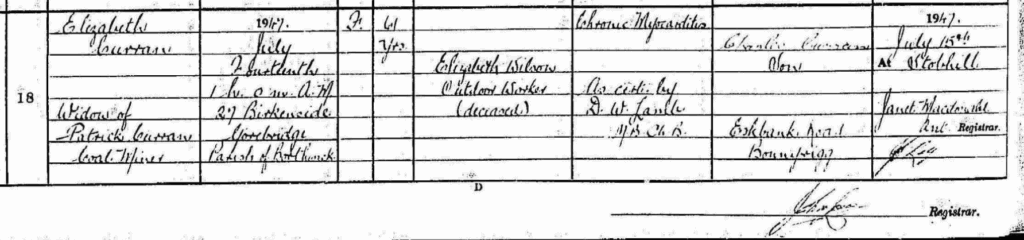 18
Elizabeth
Curran
Widow of
Patrick Curran
Coal Miner
1947.
July
1 h. 0 m. A.M.
27 Birkenside
Gorebridge
Parish of Borthwick
F.
61
Yrs
Elizabeth Wilson
Outdoor Worker
(deceased)
Chronic Myocarditis
As cert. by
D. W. Lamb
M.B. Ch. B.
Charles Curran
Son
Eskbank Road
Bonnyrigg
1947.
July 15th
At Stobhill
Janet Macdonald
Registrar.
D
Registrar.